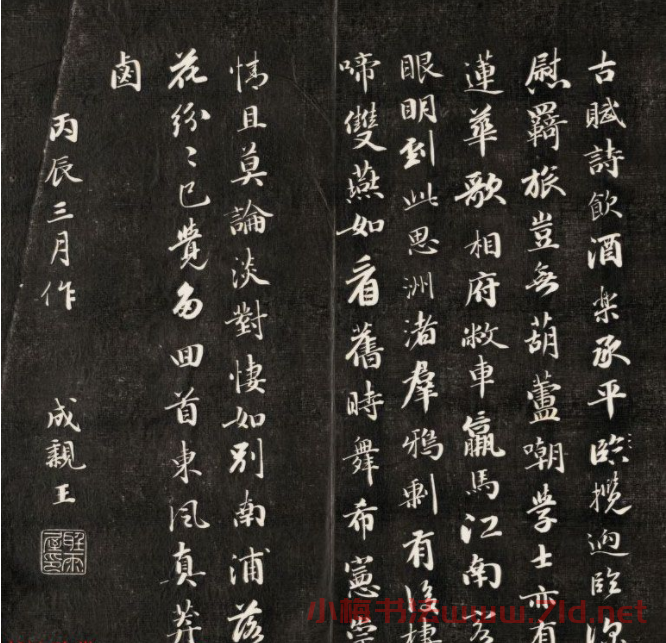 古賦詩飲酒樂承平臨攬逈臨
慰羇旅豈無葫蘆嘲學士亦有
蓮華歌相府敝車羸馬江南
眼明到此思洲渚羣鴉剩有後棲
啼雙燕如看舊時舞希憲當
情且莫論淡對悽如别南浦落
花紛〻已覺多回首東風真莽
鹵
丙辰三月作 成親王
小楷书法www.7ld.net